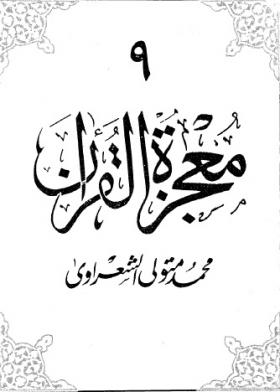 ٩
معجزة القرآن
محمد متولى الشعراوى